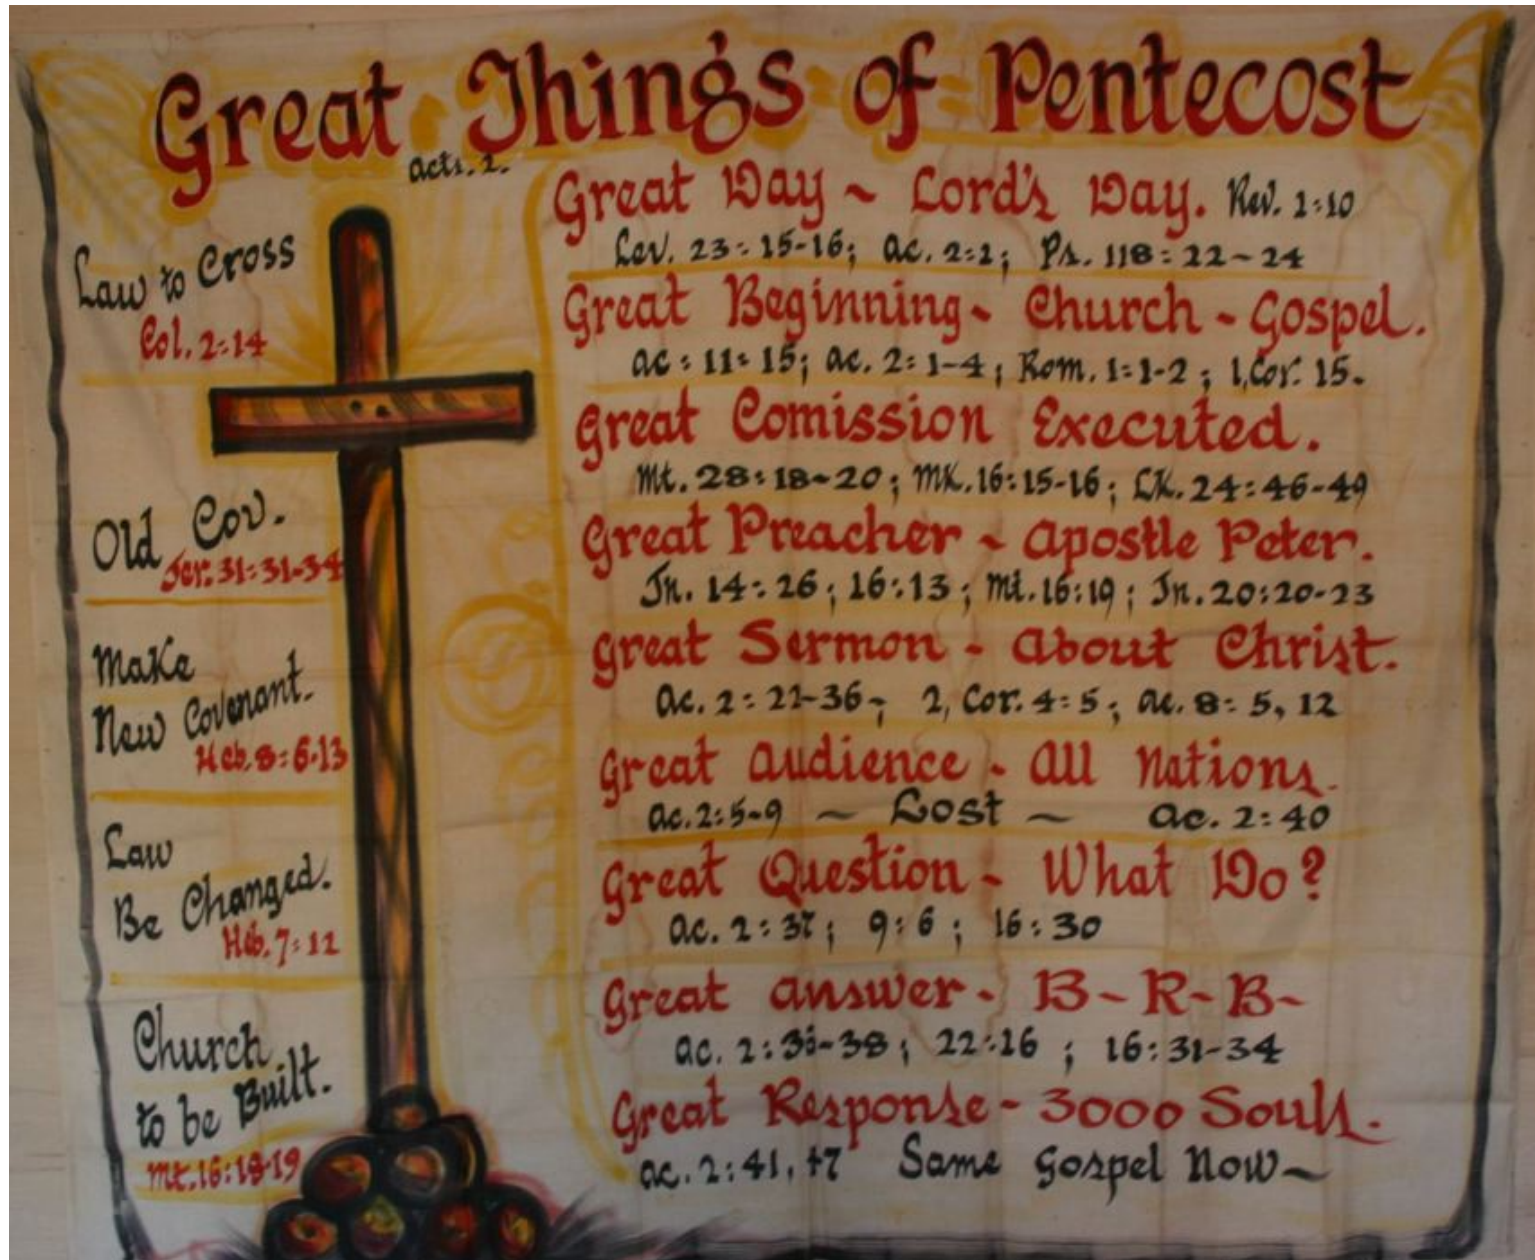 Great Things of Pentecost
Acts. 2.
Law to Cross
Col. 2:14
Old Cov.
Jer. 31:31-34
Make
New Covenant.
Heb. 8:6-13
Law
Be Changed.
Heb. 7:12
Church
to be Built.
Mt. 16:18-19
Great Day ~ Lord's Day. Rev. 1:10
Lev. 23:15-16; Ac. 2:1; Ps. 118:22-24
Great Beginning - Church - Gospel.
Ac: 11:15; Ac. 2:1-4; Rom. 1:1-2; 1, Cor. 15.
Great Comission Executed.
Mt. 28:18-20; Mk. 16:15-16; Lk. 24:46-49
Great Preacher - Apostle Peter.
Jn. 14:26; 16:13; Mt. 16:19; Jn. 20:20-23
Great Sermon - About Christ.
Ac. 2:22-36; 2, Cor. 4:5; Ac. 8:5, 12
Great Audience - All Nations.
Ac. 2:5-9 ~ Lost ~ Ac. 2:40
Great Question - What Do?
Ac. 2:37; 9:6; 16:30
Great Answer - B-R-B-
Ac. 22:16; 16:31-34
Great Response - 3000 Souls.
Ac. 2:41, 47 Same Gospel Now~